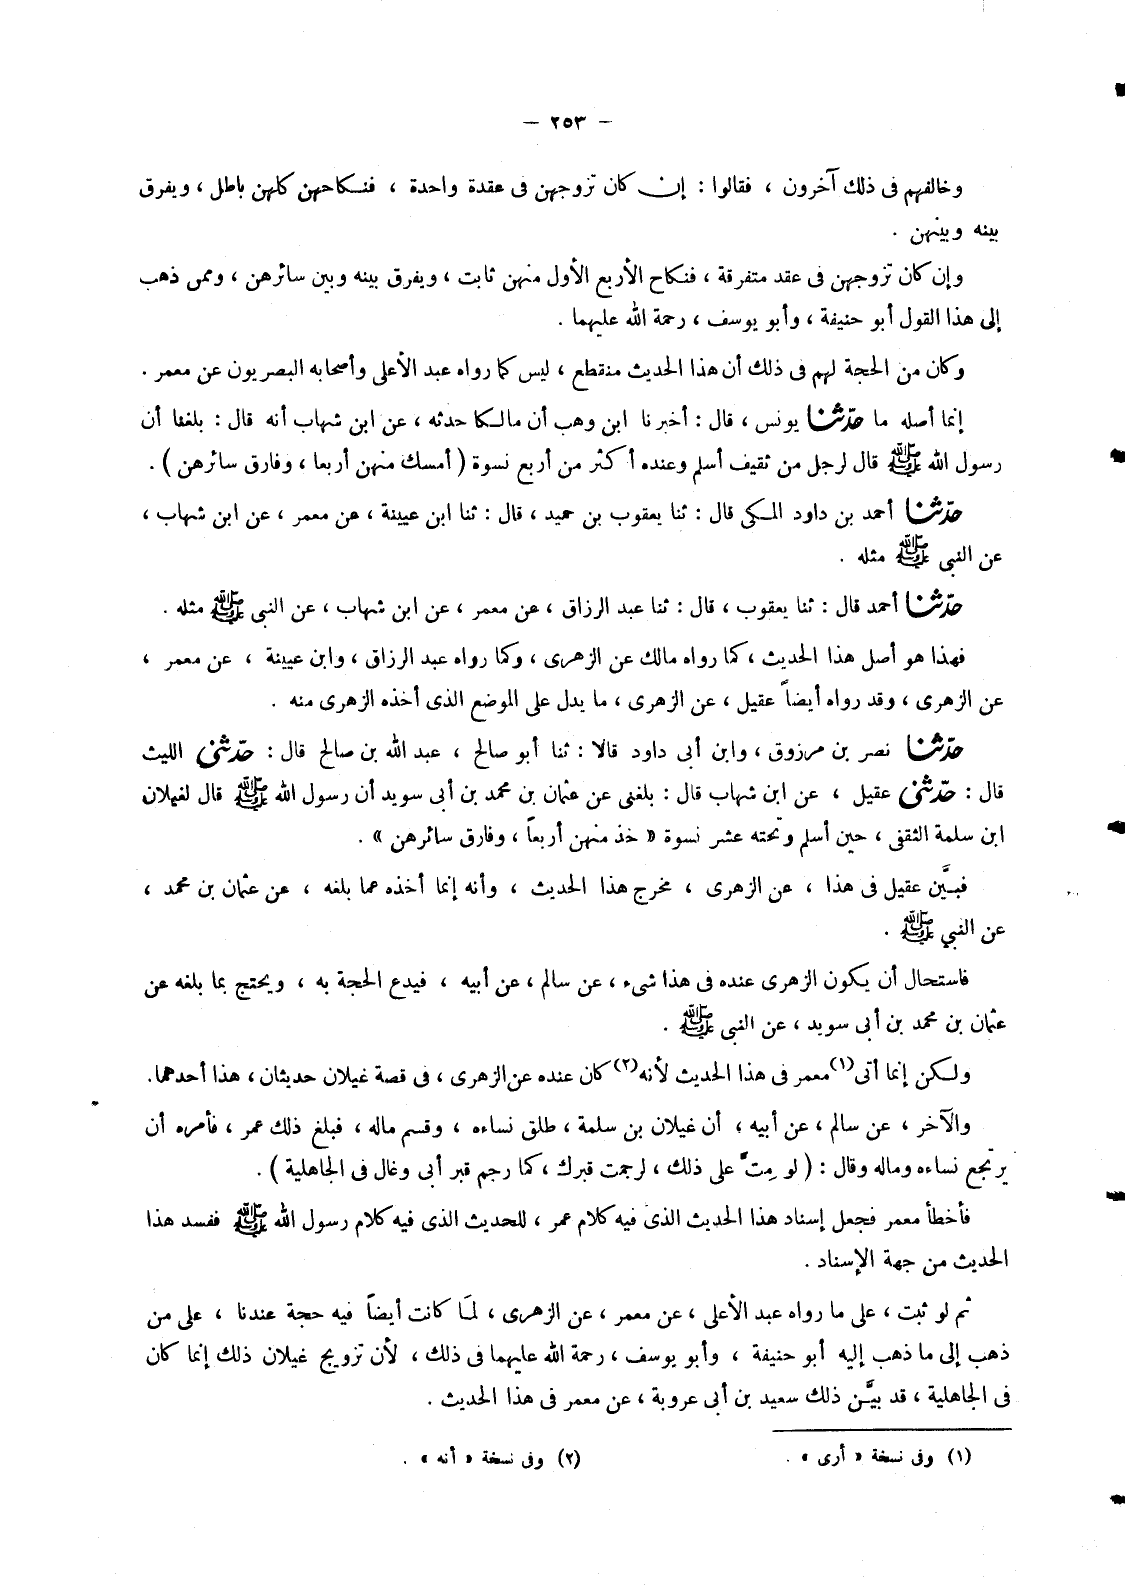 – ٢٥٣ –
وخالفهم فى ذلك آخرون ، فقالوا : إن كان تزوجهن فى عقدة واحدة ، فنكاحهن كلهن باطل ، ويفرق
بينه وبينهن .
وإن كان تزوجهن فى عقد متفرقة ، فنكاح الأربع الأول منهن ثابت ، ويفرق بينه وبين سائرهن ، وممن ذهب
إلى هذا القول أبو حنيفة ، وأبو يوسف ، رحمة الله عليهما .
وكان من الحجة لهم فى ذلك أن هذا الحديث منقطع ، ليس كما رواه عبد الأعلى وأصحابه البصريون عن معمر .
إنما أصله ما حدّثنا يونس ، قال : أخبرنا ابن وهب أن مالكا حدثه ، عن ابن شهاب أنه قال : بلغنا أن
رسول الله ﷺ قال لرجل من ثقيف أسلم وعنده أكثر من أربع نسوة ( أمسك منهن أربعا ، وفارق سائرهن ) .
حدّثنا أحمد بن داود المكى قال : ثنا يعقوب بن حميد ، قال : ثنا ابن عيينة ، عن معمر ، عن ابن شهاب ،
عن النبى ﷺ مثله .
حدّثنا أحمد قال : ثنا يعقوب ، قال : ثنا عبد الرزاق ، عن معمر ، عن ابن شهاب ، عن النبى ﷺ مثله .
فهذا هو أصل هذا الحديث ، كما رواه مالك عن الزهرى ، وكما رواه عبد الرزاق ، وابن عيينة ، عن معمر ،
عن الزهرى ، وقد رواه أيضاً عقيل ، عن الزهرى ، ما يدل على الموضع الذى أخذه الزهرى منه .
حدّثنا نصر بن مرزوق ، وابن أبى داود قالا : ثنا أبو صالح ، عبد الله بن صالح قال : حدّثنى الليث
قال : حدّثنى عقيل ، عن ابن شهاب قال : بلغنى عن عثمان بن محمد بن أبى سويد أن رسول الله ﷺ قال لغيلان
ابن سلمة الثقفى ، حين أسلم وتحته عشر نسوة « خذ منهن أربعاً ، وفارق سائرهن » .
فبيَّن عقيل فى هذا ، عن الزهرى ، مخرج هذا الحديث ، وأنه إنما أخذه عما بلغه ، عن عثمان بن محمد ،
عن النبي ﷺ .
فاستحال أن يكون الزهرى عنده فى هذا شىء ، عن سالم ، عن أبيه ، فيدع الحجة به ، ويحتج بما بلغه عن
عثمان بن محمد بن أبى سويد ، عن النبى ﷺ .
ولكن إنما أتى(١) معمر فى هذا الحديث لأنه(٢) كان عنده عن الزهرى ، فى قصة غيلان حديثان ، هذا أحدهما.
والآخر ، عن سالم ، عن أبيه ، أن غيلان بن سلمة ، طلق نساءه ، وقسم ماله ، فبلغ ذلك عمر ، فأمره أن
يرتجع نساءه وماله وقال : ( لو مِتَّ على ذلك ، لرجمت قبرك ، كما رجم قبر أبى رغال فى الجاهلية ) .
فأخطأ معمر فجعل إسناد هذا الحديث الذى فيه كلام عمر ، للحديث الذى فيه كلام رسول الله ﷺ ففسد هذا
الحديث من جهة الإسناد .
ثم لو ثبت ، على ما رواه عبد الأعلى ، عن معمر ، عن الزهرى ، لمَا كانت أيضاً فيه حجة عندنا ، على من
ذهب إلى ما ذهب إليه أبو حنيفة ، وأبو يوسف ، رحمة الله عليهما فى ذلك ، لأن تزويج غيلان ذلك إنما كان
فى الجاهلية ، قد بيَّن ذلك سعيد بن أبى عروبة ، عن معمر فى هذا الحديث .
(١) وفى نسخة « أرى » . (٢) وفى نسخة « أنه » .